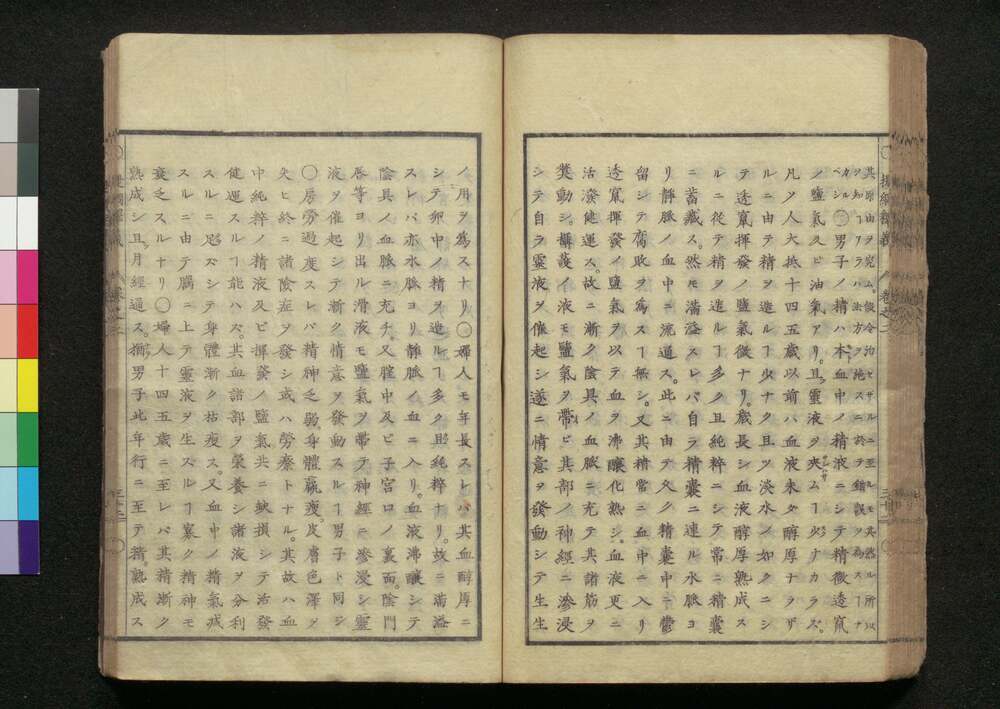 其原由ヲ究ム。假令治セザルニ至ルモ其然ル所以
ヲ知ルヿアラハ法方ヲ施スニ於テ錯誤ヲ爲スヿナ
カルベシ〇男子ノ精ハ本ト血中ノ精液ニシテ精微透竄
ノ鹽氣及ビ油氣アリ。且ツ靈液ヲ夾ムヿ少ナカラズ。
凡ソ人大抵十四五歳以前ハ血液未タ醇厚ナラザ
ルニ由テ精ヲ造ルヿ少ナク且ツ淡水ノ如クニシ
テ透竄揮發ノ鹽氣微ナリ。歳長シ血液醇厚熟成ス
ルニ從テ精ヲ造ルヿ多ク且純粹ニシテ常ニ精囊
ニ蓄藏ス。然モ滿溢スレバ自ラ精囊ニ連ル水脈ヨ
リ靜脈ノ血中ニ流通ス。此ニ由テ久ク精囊中ニ鬱
留シテ腐敗ヲ爲スヿ無シ。又其精常ニ血中ニ入リ
透竄揮發ノ鹽氣ヲ以テ血ヲ沸釀化熟シ。血液更ニ
活潑健運ス。故ニ漸ク陰具ノ血脈ニ充テ其諸筋ヲ
㷔動シ攝護ノ液モ鹽氣ヲ帶ビ其部ノ神經ニ滲浸
シテ自ラ靈液ヲ催起シ遂ニ情意ヲ發動シテ生生
ノ用ヲ爲スナリ〇婦人モ年長スレバ其血醇厚ニ
シテ卵中ノ精ヲ造ルヿ多ク且純粹ナリ。故ニ滿溢
スレバ亦水脈ヨリ靜脈ノ血ニ入リ。血液沸釀シテ
陰具ノ血脈ニ充チ。又膣中及ビ子宮ノ裏面。陰門
唇等ヨリ出ル滑液モ鹽氣ヲ帶テ神經ニ滲浸シ靈
液ヲ催起シテ漸ク情意ヲ發動スルヿ男子ト同シ
〇房勞過度スレバ精神乏弱。身體羸瘦。皮膚色澤ヲ
失ヒ終ニ諸陰症ヲ發シ或ハ勞瘵トナル。其故ハ血
中純粹ノ精液及ビ揮發ノ鹽氣共ニ缺損シテ活發
健運スルヿ能ハズ。其血諸部ヲ榮養シ諸液ヲ分利
スルニ足ズシテ身體漸ク枯瘦ス。又血中ノ精氣減
スルニ由テ腦ニ上テ靈液ヲ生スルヿ寡ク精神モ
衰乏スルナリ〇婦人十四五歳ニ至レバ其精漸ク
熟成シ且ツ月經通ス。獨リ男子此年行ニ至テ精。熟成ス